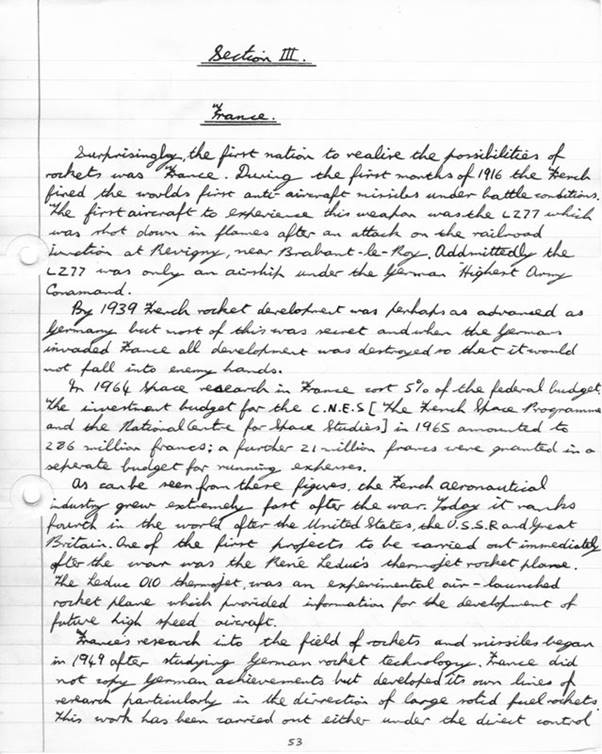 Section III.
France.
Surprisingly, the first nation to realise the possibilities of
rockets was France. During the first months of 1916 the French
fired the worlds first anti-aircraft missiles under battle conditions.
The first aircraft to experience this weapon was the LZ77 which
was shot down in flames after an attack on the railroad
junction at Revigny, near Brabant-le-Roy. Addmittedly the
LZ77 was only an airship under the German Highest Army
Command.
By 1939 French rocket development was perhaps as advanced as
Germany but most of this was secret and when the Germans
invaded France all development was destroyed so that it would
not fall into enemy hands.
In 1964 Space research in France cost 5% of the federal budget.
The investment budget for the C.N.E.S [The French Space Programme
and the National Centre for Space Studies] in 1965 amounted to
286 million francs; a further 21 million francs were granted in a
seperate budget for running expenses.
As can be seen from these figures, the French aeronautical
industry grew extremely fast after the war. Today it ranks
fourth in the world after the United States, the U.S.S.R and Great
Britain. One of the first projects to be carried out immediately
after the war was the René Leduc's thermojet rocket plane.
The Leduc 010 thermojet, was an experimental air-launched
rocket plane which provided information for the development of
future high speed aircraft.
France's research into the field of rockets and missiles began
in 1949 after studying German rocket technology. France did
not copy German achievements but developed its own lines of
research particularly in the dirrection of large solid fuel rockets.
This work has been carried out either under the direct control
53